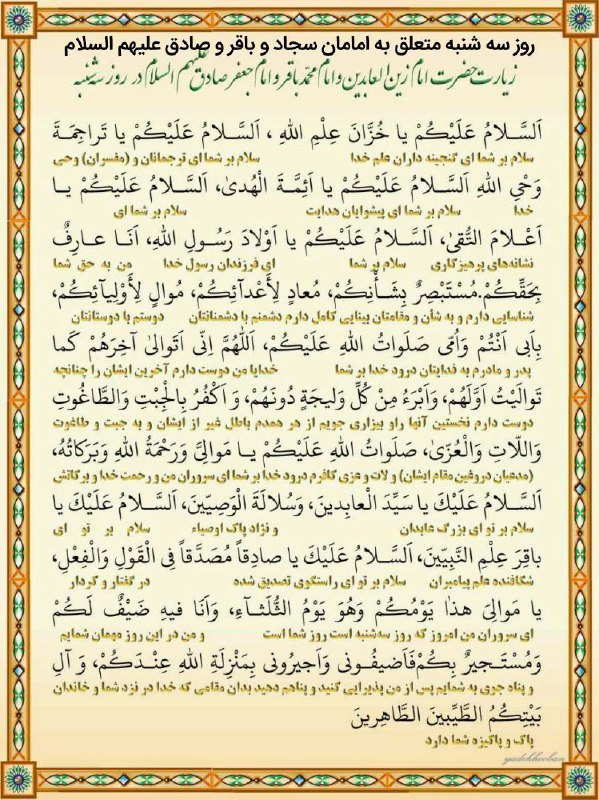 روز سه شنبه متعلق به امامان سجاد و باقر و صادق علیهم السلام
زیارت حضرت امام زین العابدین و امام محمد باقر و امام جعفر صادق علیهم السلام در روز سه‌شنبه
اَلسَّلامُ عَلَيْكُمْ يا خُزَّانَ عِلْمِ اللهِ ، اَلسَّلامُ عَلَيْكُمْ يا تَراجِمَةَ
سلام بر شما ای گنجینه داران علم خدا سلام بر شما ای ترجمانان و (مفسران) وحی
وَحْيِ اللهِ اَلسَّلامُ عَلَيْكُمْ يا اَئِمَّةَ الْهُدىٰ، اَلسَّلامُ عَلَيْكُمْ يـا
خدا سلام بر شما ای پیشوایان هدایت سلام بر شما ای
اَعْلامَ التُّقىٰ، اَلسَّلامُ عَلَيْكُمْ يا اَوْلادَ رَسُولِ اللهِ، اَنَا عـارِفٌ
نشانه‌های پرهیزگاری سلام بر شما ای فرزندان رسول خدا من به حق شما
بِحَقِّكُمْ.مُسْتَبْصِرٌ بِشَأْنِكُمْ، مُعادٍ لِأَعْدآئِكُمْ، مُوالٍ لِأَوْلِيآئِكُمْ،
شناسایی دارم و به شأن و مقامتان بینایی کامل دارم دشمنم با دشمنانتان دوستم با دوستانتان
بِاَبى اَنْتُمْ وَاُمّى صَلَواتُ اللهِ عَلَيْكُمْ، اَللّٰهُمَّ اِنّى اَتَوالىٰ آخِرَهُمْ كَما
پدر و مادرم به فدایتان درود خدا بر شما خدایا من دوست دارم آخرین ایشان را چنانچه
تَوالَيْتُ اَوَّلَهُمْ، وَاَبْرَءُ مِنْ كُلِّ وَليجَةٍ دُونَهُمْ، وَ اَكْفُرُ بِالْجِبْتِ وَالطَّاغُوتِ
دوست دارم نخستین آنها راو بیزاری جویم از هر همدم باطل غیر از ایشان و به جبت و طاغوت
وَاللّاتِ وَالْعُزّىٰ، صَلَواتُ اللهِ عَلَيْكُمْ يـا مَوالِيَّ وَرَحْمَةُ اللهِ وَبَرَكاتُهُ،
(مدعیان دروغین مقام ایشان) و لات و عزی کافرم درود خدا بر شما ای سروران من و رحمت خدا و برکاتش
اَلسَّلامُ عَلَيْكَ يا سَيِّدَ الْعابِدينَ، وَسُلالَةَ الْوَصِيّينَ، اَلسَّلامُ عَلَيْكَ يا
سلام بر تو ای بزرگ عابدان و نژاد پاک اوصیاء سلام بر تو ای
باقِرَ عِلْمِ النَّبِيّينَ، اَلسَّلامُ عَلَيْكَ يا صادِقاً مُصَدَّقاً فِى الْقَوْلِ وَالْفِعْلِ،
شکافنده علم پیامبران سلام بر تو ای راستگوی تصدیق شده در گفتار و کردار
يا مَوالِىَ هذا يَوْمُكُمْ وَهُوَ يَوْمُ الثُّلَثـآءِ، وَاَنَا فيهِ ضَيْفٌ لَكُمْ
ای سروران من امروز که روز سه‌شنبه است روز شما است و من در این روز مهمان شمایم
وَمُسْتَجيرٌ بِكُمْ فَاَضيفُونى وَاَجيرُونى بِمَنْزِلَةِ اللهِ عِنْدَكُمْ، وَ آلِ
و پناه جوی به شمایم پس از من پذیرایی کنید و پناهم دهید بدان مقامی که خدا در نزد شما و خاندان
بَيْتِكُمُ الطَّيِّبينَ الطَّاهِرينَ
پاک و پاکیزه شما دارد
yadekhooban